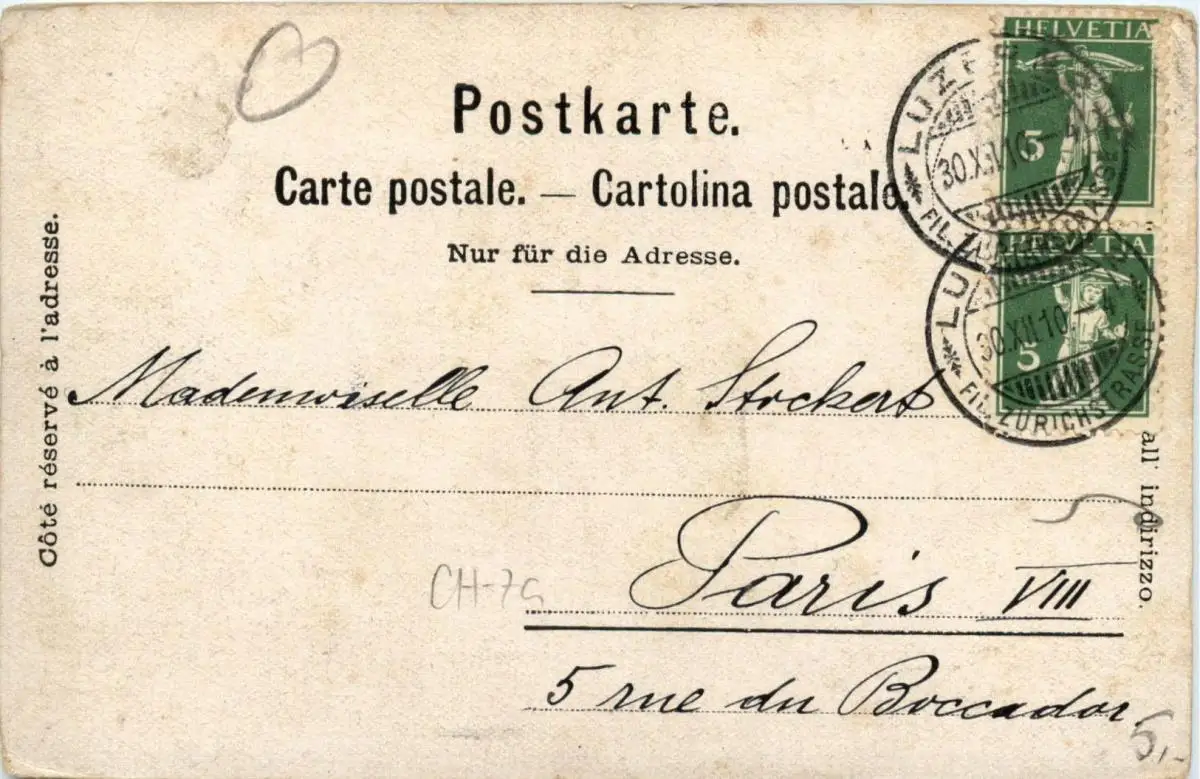 HELVETIA
5
LUZERN
30.XII.10 – 4
FIL. ZÜRICHSTRASSE
Postkarte.
Carte postale. — Cartolina postale.
Nur für die Adresse.
HELVETIA
5
LUZERN
30.XII.10 – 4
FIL. ZÜRICHSTRASSE
Côté réservé à l'adresse.
all' indirizzo.
Mademoiselle Ant. Stockert
Paris VIII
CH-7a
5 rue du Boccador.
5,-